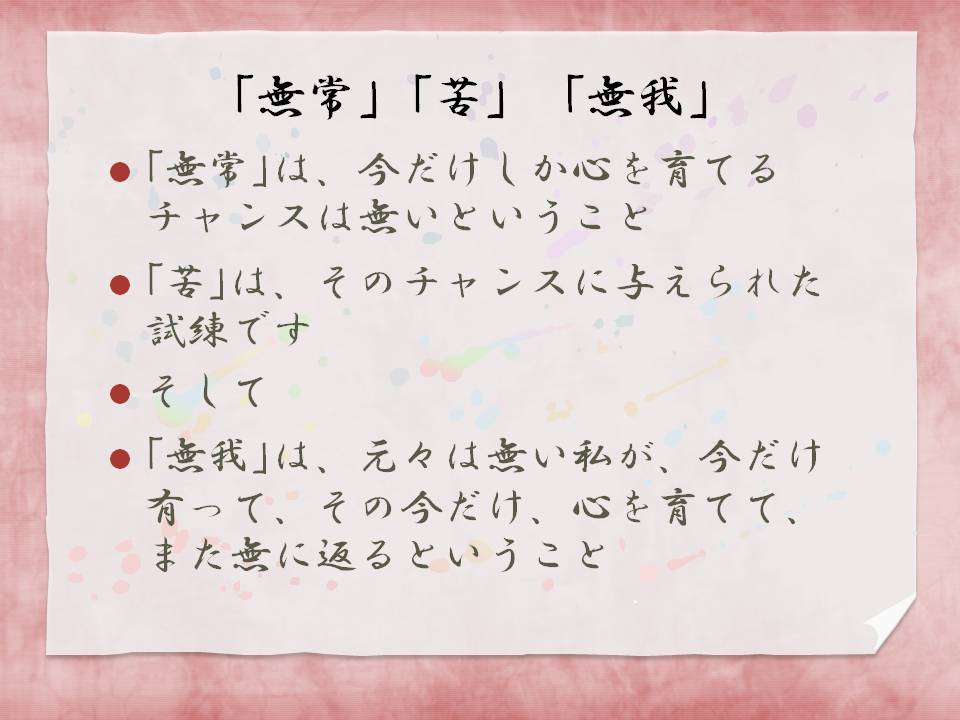 「無常」「苦」 「無我」
「無常」は、今だけしか心を育てる
チャンスは無いということ
「苦」は、そのチャンスに与えられた
試練です
そして
「無我」は、元々は無い私が、今だけ
有って、その今だけ、心を育てて、
また無に返るということ